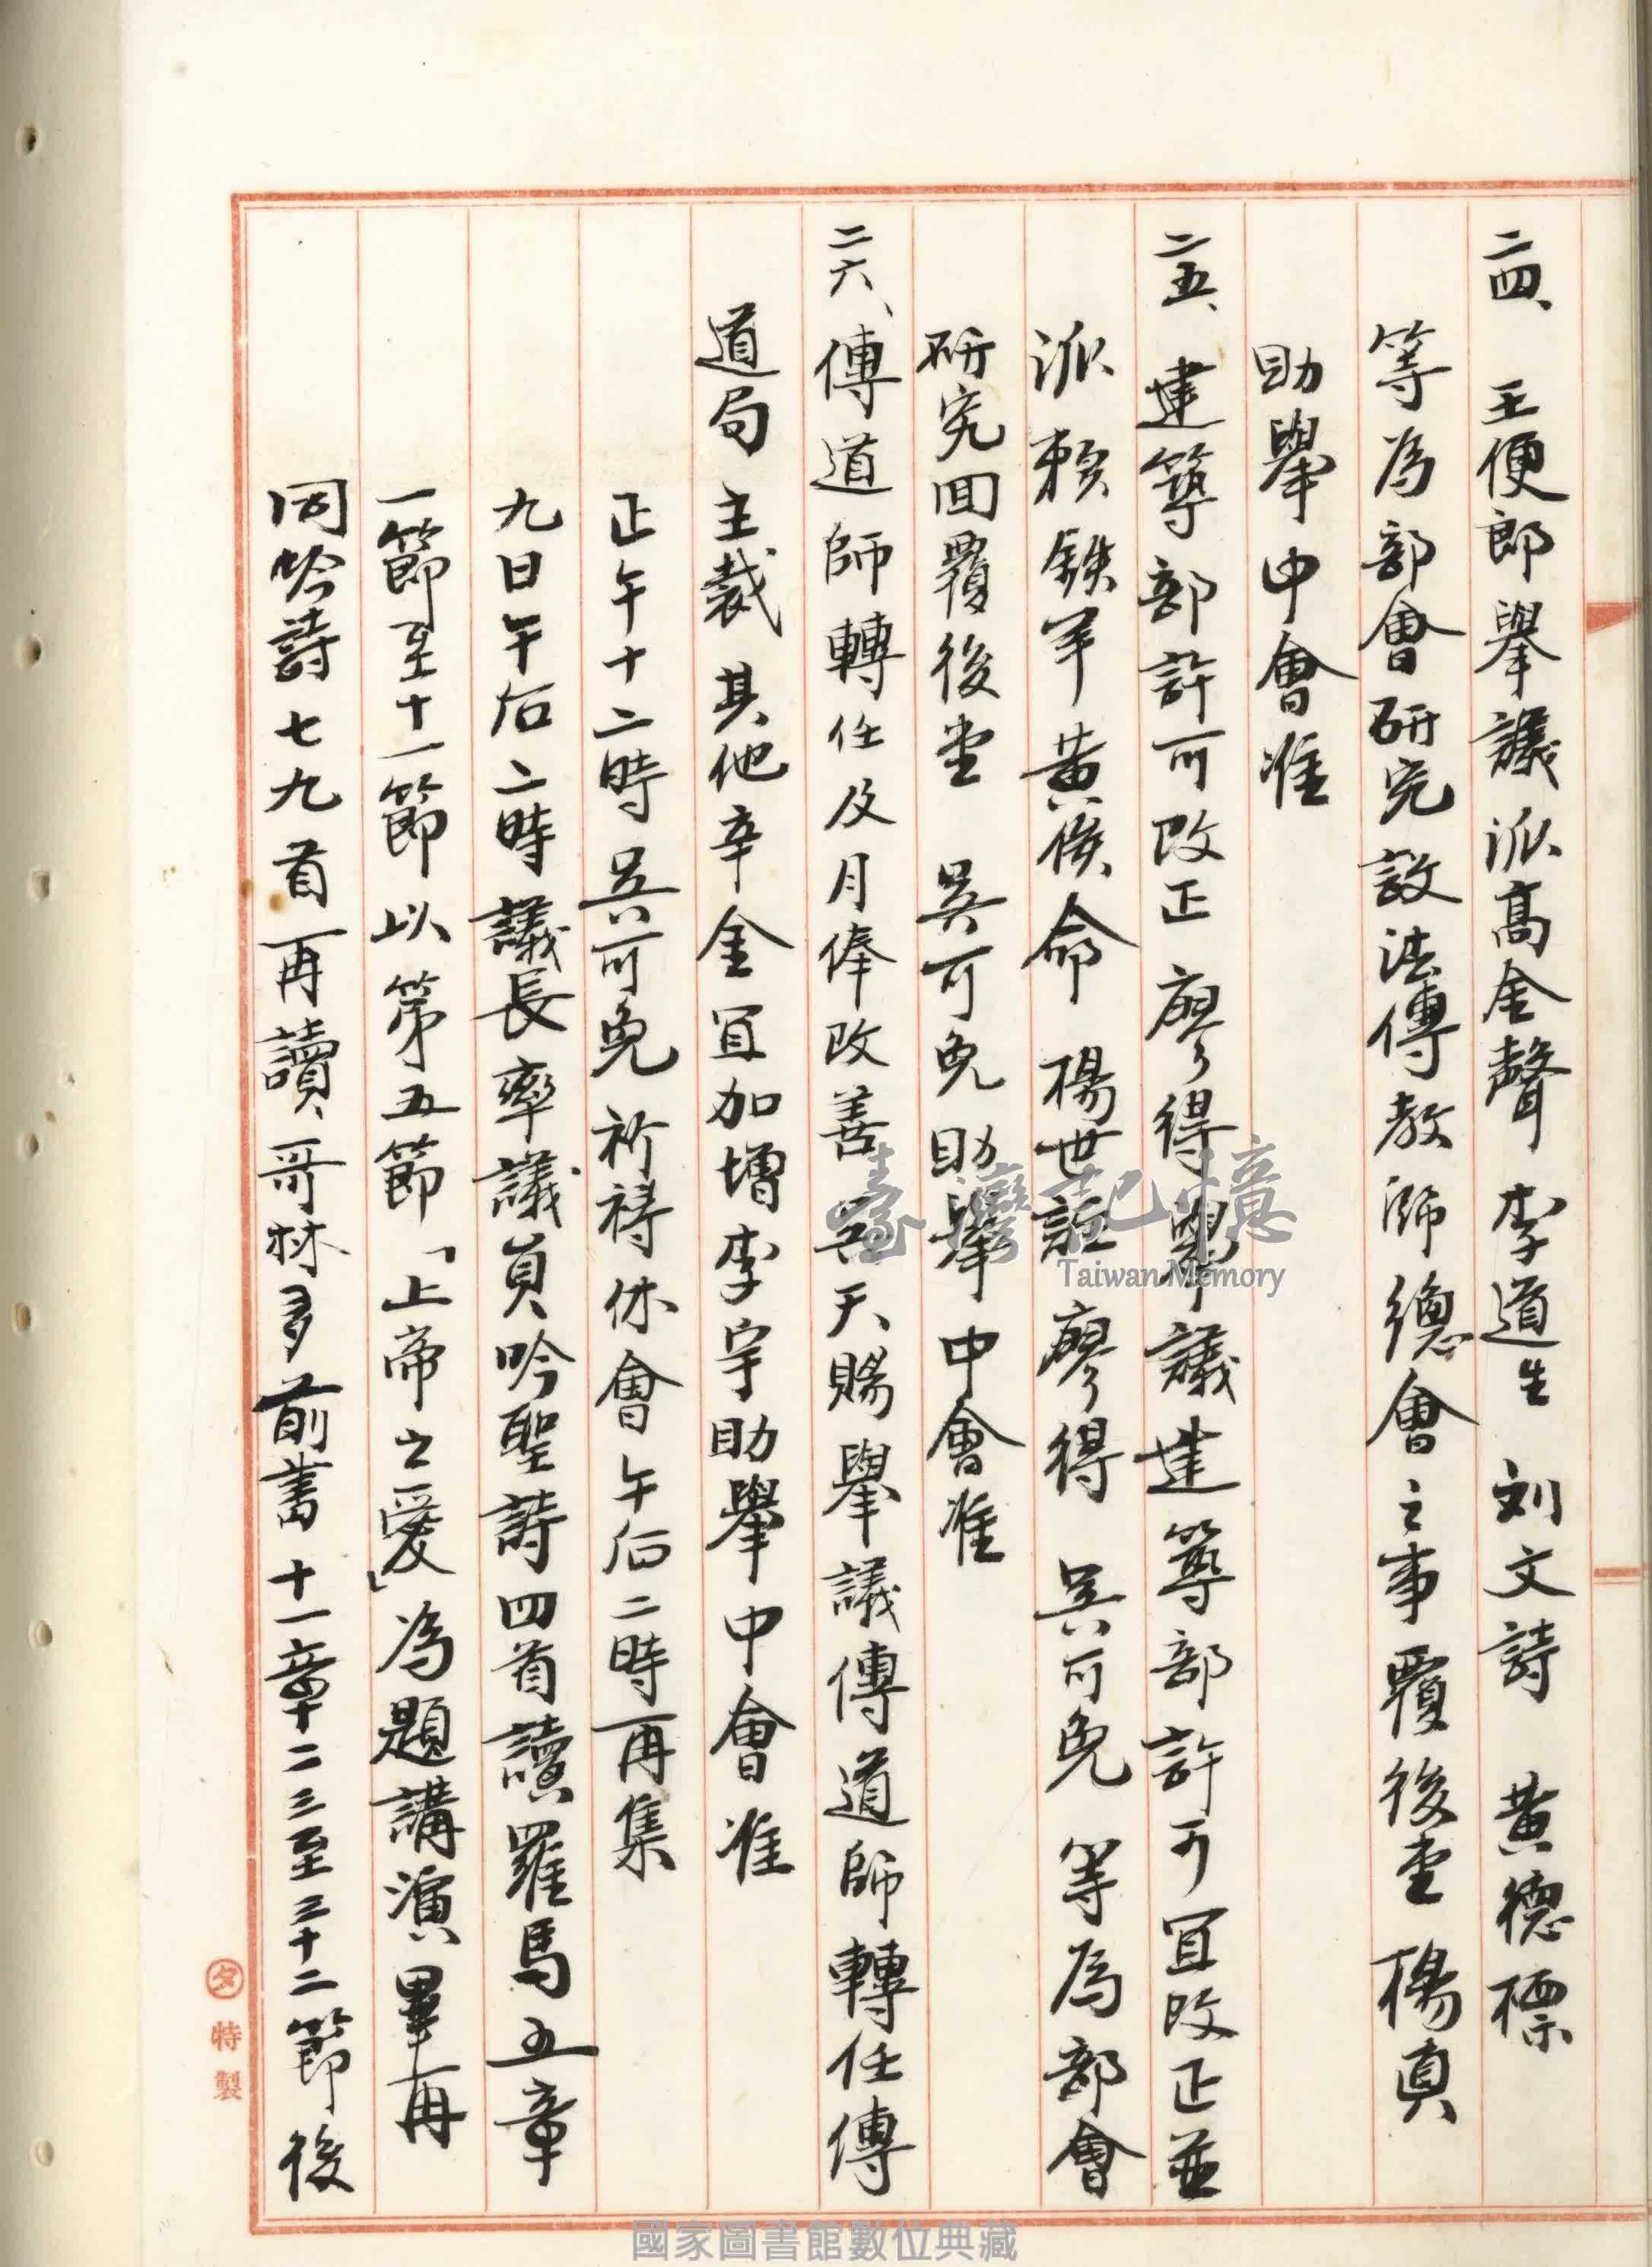 二四、王便郎舉議派高金聲 李道生 刘文詩 黄德標
等為部會研究設法傳教師總會之事覆後堂 楊真
助舉中會准
二五、建築部許可改正 廖得舉議建築部許可宜改正並
派賴鉄羊 黄俟命 楊世註 廖得 吳可免 等為部會
研究回覆後堂 吳可免助舉中會准
二六、傳道師轉任及月俸改善 吳天賜舉議傳道師轉任傳
道局主裁其他辛金宜加增李宇助舉中會准
正午十二時吳可免祈禱休會午后二時再集
九日午后二時議長率議員吟聖詩四首讀羅馬五章
一節至十一節以第五節「上帝之愛」為題講演畢再
同吟詩七九首再讀哥林多前書十一章二三至三十二節後
タ特製
臺灣記憶
Taiwan Memory
國家圖書館數位典藏